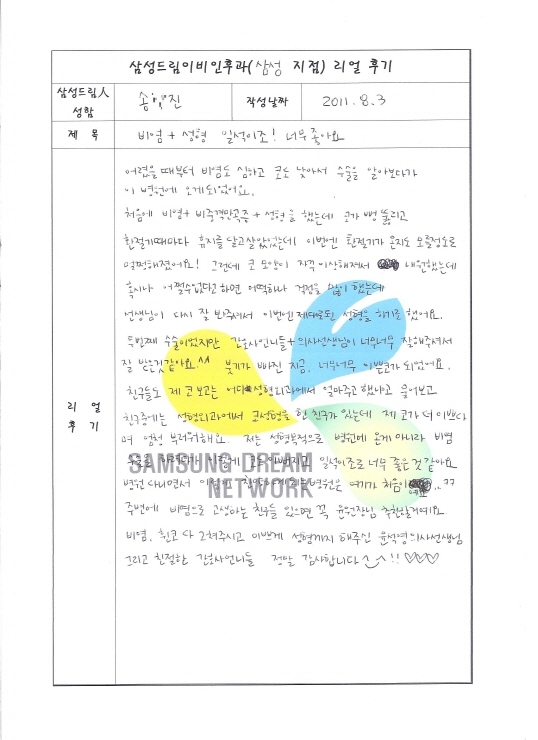 삼성드림이비인후과(삼성 지점) 리얼 후기
삼성드림人 성함
송 진
작성날짜
2011. 8. 3
제 목
비염 + 성형 일석이조! 너무좋아요
리 얼 후 기
어렸을때부터 비염도 심하고 코도 낮아서 수술을 알아보다가
이 병원에 오게되었어요.
처음에 비염+ 비중격만곡증 + 성형을 했는데 코가 뻥 뚫리고
환절기때마다 휴지를 달고살았었는데 이번엔 환절기가 온지도 모를정도로
멀쩡해졌어요! 그런데 코 모양이 자꾸 이상해져서 내원했는데
혹시나 어쩔수없다고 하면 어떡하나 걱정을 많이 했는데
선생님이 다시 잘 봐주셔서 이번엔 제대로된 성형을 하기로 했어요.
두번째 수술이었지만 간호사언니들+의사선생님이 너무너무 잘해주셔서
잘 받은것같아요.^^ 붓기가 빠진 지금, 너무너무 이쁜코가 되었어요.
친구들도 제 코보고는 어디 성형외과에서 얼마주고했냐고 물어보고
친구중에는 성형외과에서 코성형을 한 친구가 있는데 제코가 더 이쁘다
며 엄청 부러워해요. 저는 성형목적으로 병원에 온게 아니라 비염
코도 이뻐지고 일석이조로 너무 좋은것 같아요
병원 다니면서 이렇게 병원은 여기가 처음이 예요..ㅋㅋ
주변에 비염으로 고생하는 친구들 있으면 꼭 윤원장님 추천할거예요
비염, 휜코 다 고쳐주시고 이쁘게 성형까지 해주신 윤석영의사선생님
그리고 친절한 간호사언니들 정말 감사합니다^_^!!♡♡♡
SAMSUNG DREAM
NETWORK